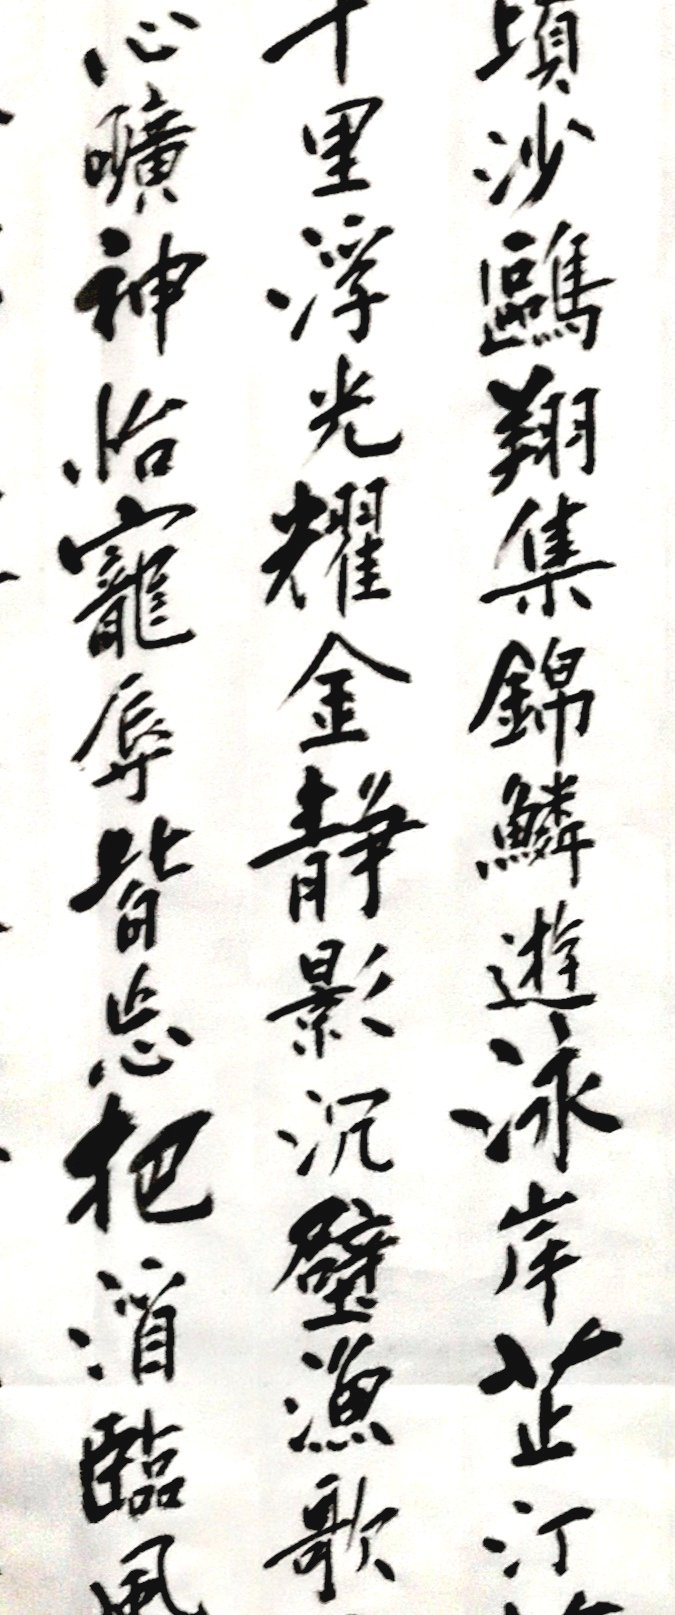 頃沙鷗翔集錦鱗遊泳岸芷汀
十里浮光耀金靜影沉璧漁歌
心曠神怡寵辱皆忘把酒臨風